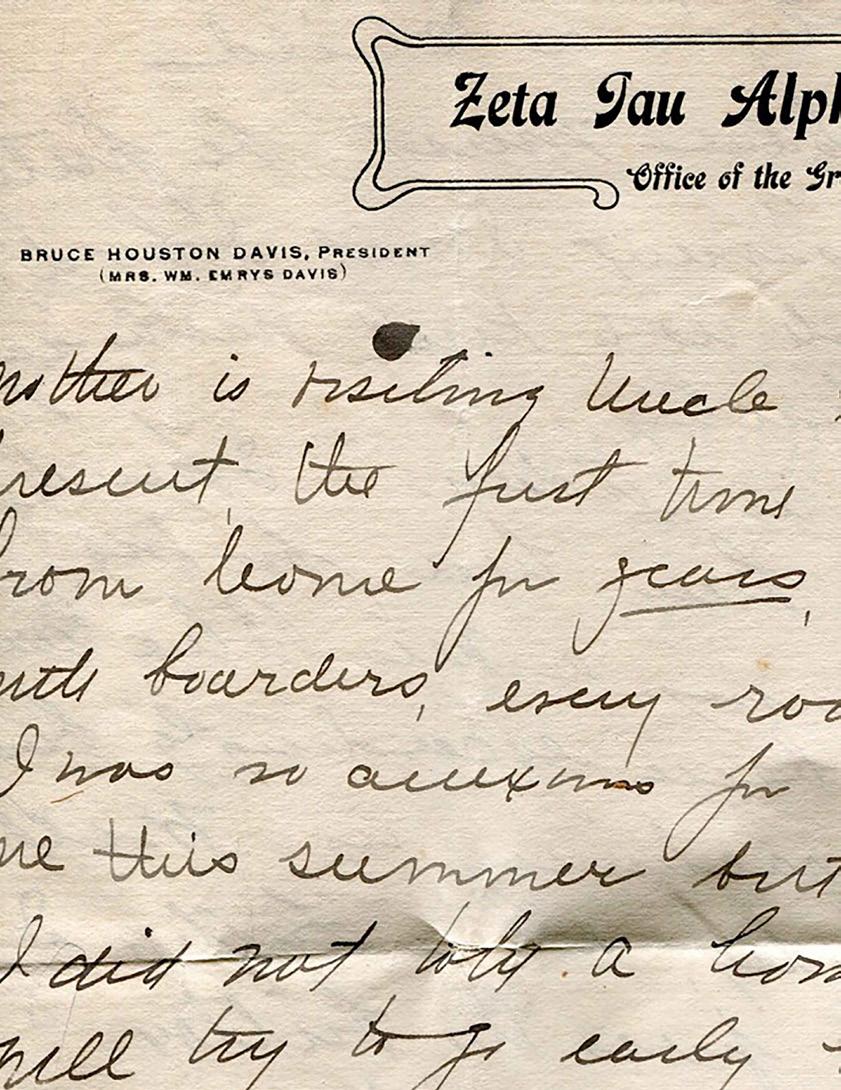 Zeta Tau Alph
Office of the Gr
BRUCE HOUSTON DAVIS, PRESIDENT
(MRS. WM. EMRYS DAVIS)
mother is visiting Uncle
present, the first time
from home for years,
with boarders, every roo
I was so anxious for
me this summer but
I did not take a hom
will try to go early